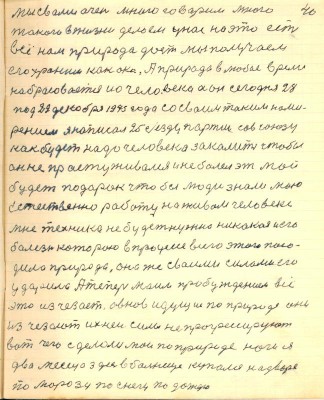 мы свами очен много говорим много
такого в жизни делоем у нас на это есть
всё нам природа дает мы получаем
сохраним как ока, А природа в любое время
набрасовается но человека а он сегодня 28
под 29 декобря 1975 года со своим таким наме-
рением я написал 25 съезду партии сов союзу
как будет надо человека закалить чтобы
он не простуживался и не болел эт мой
будет подарок что бы люди знали мою
естественно работу на живом человеке
мне техника не будет нужно никакая и его
болезн которою в процесе всего этого
дила природа, она же своими силами его
ударила А теперь моим пробуждением всё
это изчезает. овнов идущие по природе они
изчезают их ней силы не прогресируют
вот чего сделоли мои по природе ноги я
два месяца здесь в больнице купался на дворе
по морозу по снегу по дождю